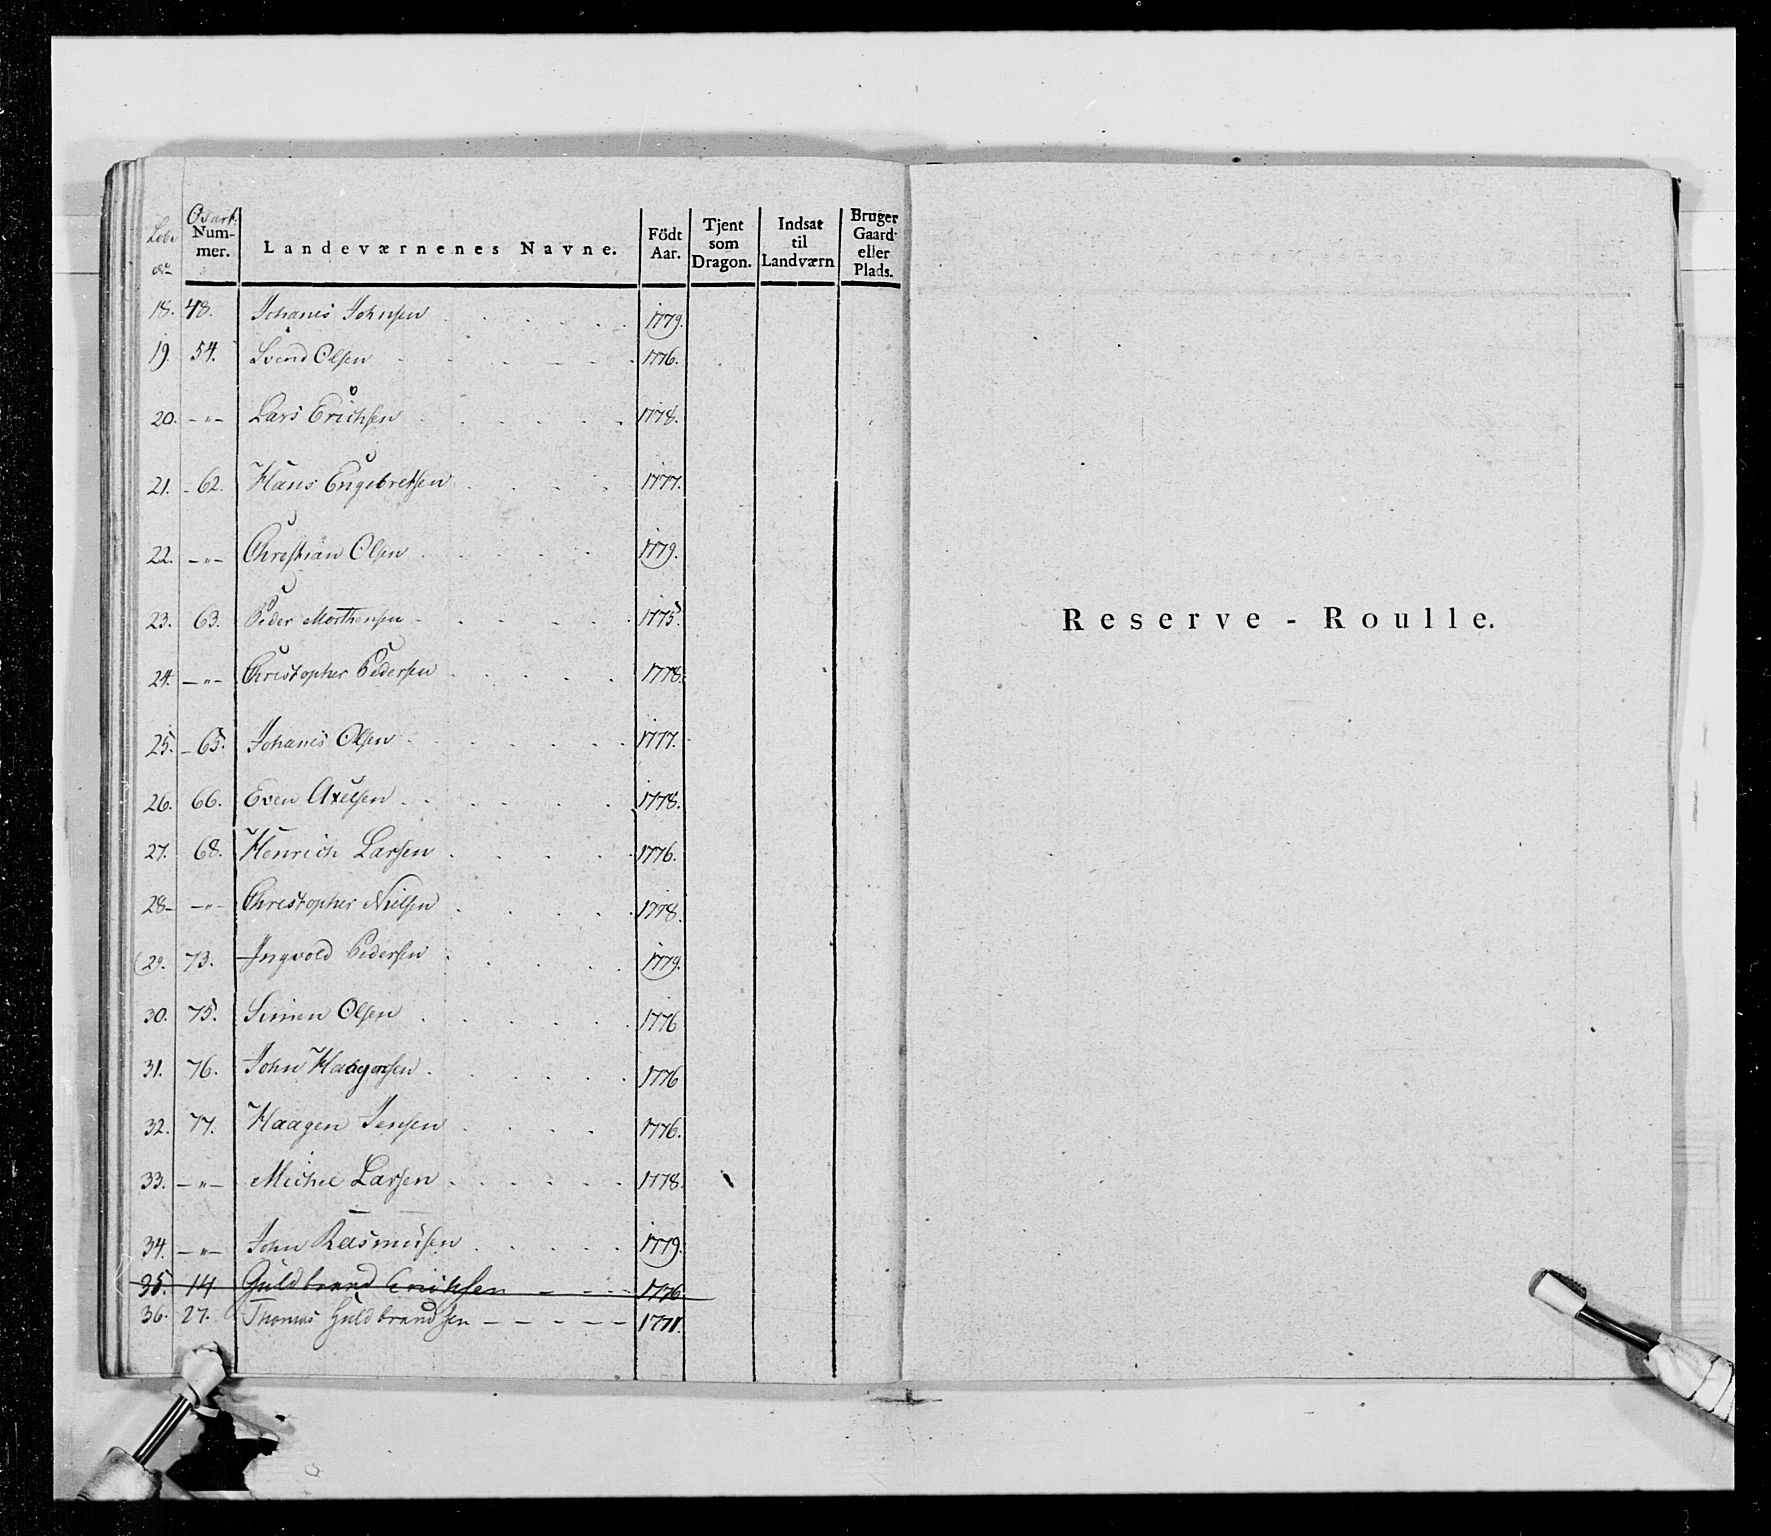 Löbe No Qvart: Num-mer. Landeværnenes Navne. Födt Aar. Tjent som Dragon. Indsat til Landværn Bruger Gaard eller Plads.
18. 48. Johanis Johnsen . . . . . 1779.
19. 54. Svend Olsen . . . . . 1776.
20. -"- Lars Erichsen . . . . . 1778.
21. -62. Hans Engebretsen . . . . 1777.
22. -"- Christian Olsen . . . . . 1779.
23. 63. Peder Morthensen . . . . . 1775.
24. -"- Christopher Pedersen . . . . . 1778.
25. -65. Johanis Olsen . . . . . 1777.
26. 66. Even Axelsen . . . . . 1778.
27. 68. Henrich Larsen . . . . . 1776.
28- -"- Christopher Nielsen . . . . . 1778.
29. 73. Ingvold Pedersen . . . . . 1779.
30. 75. Simen Olsen . . . . . 1776
31. 76. John Haagensen . . . . . 1776
32. 77. Haagen Jensen . . . . 1776.
33. -"- Michel Larsen . . . . . 1778.
34. -"- John Rasmusen . . . . . 1779.
35. 14 Guldbrand Erichsen - - - 1776
36. 27. Thomas Guldbrandsen - - - - - 1771.
Reserve - Roulle.